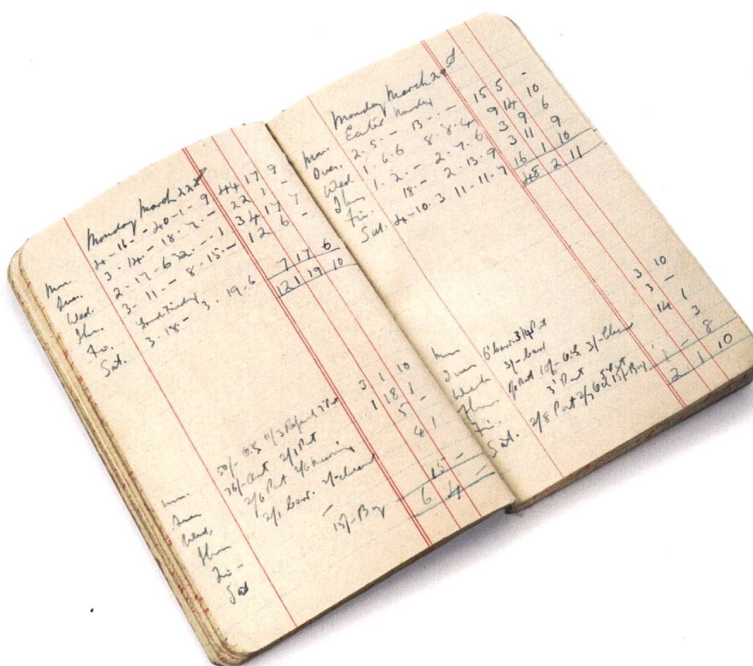 Monday March 22nd
Mon. 4-16-- 40-1-9 44 17 9
Tues. 3-14- 18-7-- 22 1 -
Wed. 2-17-6 32.-.1 34 17 7
Thu. 3-11- 8-15- 12 6 -
Fri. Good Friday
Sat. 3-18- 3.19.6 7 17 6
121 19 10
Mon 50/- G.S. 11/3 Refund 7d Post 3 1 10
Tues 36/- 2/1 Post 1 18 1
Wed. 2/6 Post 2/6 5 -
Thu 2/1 2/- cleaner 4 1
Fri -
Sat 15/- Boy 15 -
6 4 -
Monday March 29th
Mon. Easter Monday
Tues. 2.5.- 13-.- 15 5 -
Wed 1.6.6 8.8.4 9 14 10
Thu. 1.2.- 2.7.6 3 9 6
Fri. 18.- 2.13.9 3 11 9
Sat. 4-10-3 11-11-7 16 1 10
48 2 11
Mon
Tues 6d 3/4 Post 3 10
Wed 3/- 3 -
Thu Post 10/- G.S. 3/- cleaner 14 1
Fri. 3d Post 3
Sat. 2/8 Post 15/- Boy 1 - 8
2 1 10